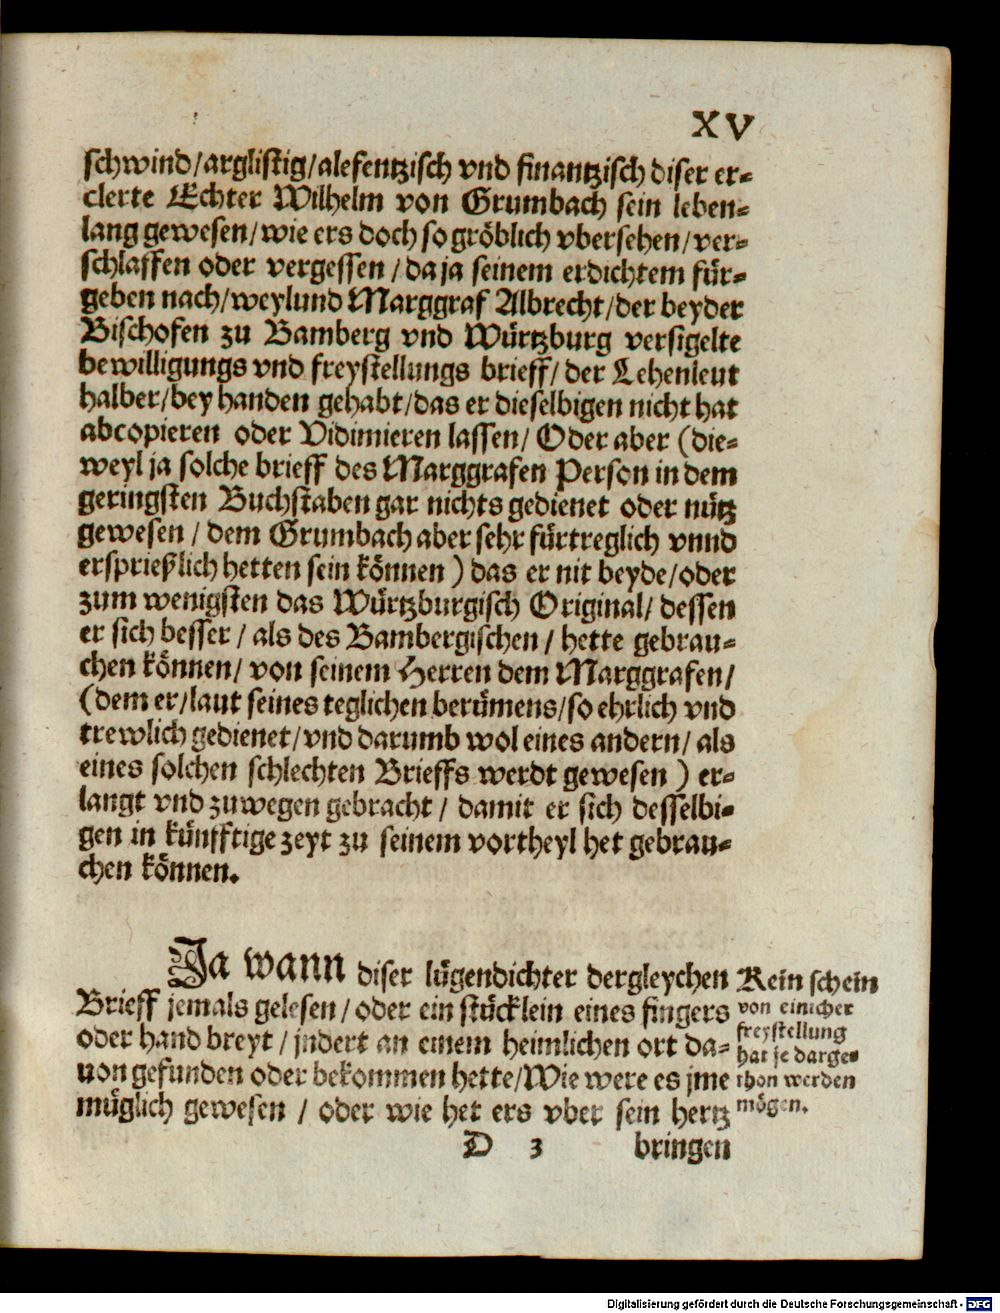 XV
schwind/arglistig/alefentzisch vnd finantzisch diser er-
clerte Echter Wilhelm von Grumbach sein leben-
lang gewesen/wie ers doch so gröblich vbersehen/ver-
schlaffen oder vergessen/da ja seinem erdichtem für-
geben nach/weylund Marggraf Albrecht/der beyder
Bischofen zu Bamberg vnd Würtzburg versigelte
bewilligungs vnd freystellungs brieff/der Lehenleut
halber/bey handen gehabt/das er dieselbigen nicht hat
abcopieren oder Vidimieren lassen/Oder aber (die-
weyl ja solche brieff des Marggrafen Person in dem
geringsten Buchstaben gar nichts gedienet oder nütz
gewesen/dem Grumbach aber sehr fürtreglich vnnd
ersprießlich hetten sein können) das er nit beyde/oder
zum wenigsten das Würtzburgisch Original/dessen
er sich besser/als des Bambergischen/hette gebrau-
chen können/von seinem Herren dem Marggrafen/
(dem er/laut seines teglichen berümens/so ehrlich vnd
trewlich gedienet/vnd darumb wol eines andern/als
eines solchen schlechten Brieffs werdt gewesen) er-
langt vnd zuwegen gebracht/damit er sich desselbi-
gen in künfftige zeyt zu seinem vortheyl het gebrau-
chen können.
Ja wann diser lügendichter dergleychen
Brieff jemals gelesen/oder ein stücklein eines fingers
oder hand breyt/jndert an einem heimlichen ort da-
uon gefunden oder bekommen hette/Wie were es jme
müglich gewesen/oder wie het ers vber sein hertz
Kein schein
von einicher
freystellung
hat je darge-
thon werden
mögen.
D 3
bringen
Digitalisierung gefördert durch die Deutsche Forschungsgemeinschaft - DFG